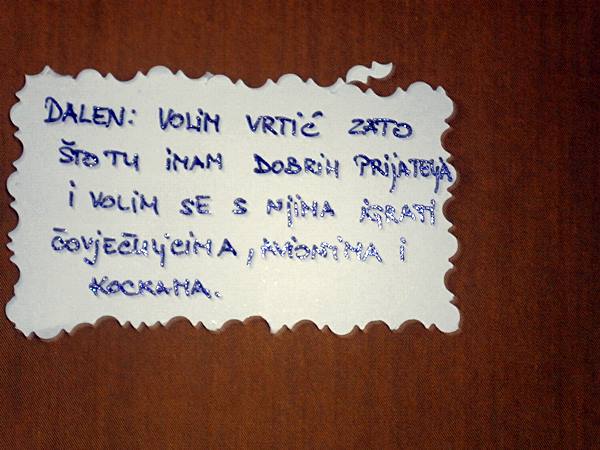 DALEN: VOLIM VRTIĆ ZATO
ŠTO TU IMAM DOBRIH PRIJATELJA
I VOLIM SE S NJIMA IGRATI
ČOVJEČULJCIMA, AVIONIMA I
KOCKAMA.